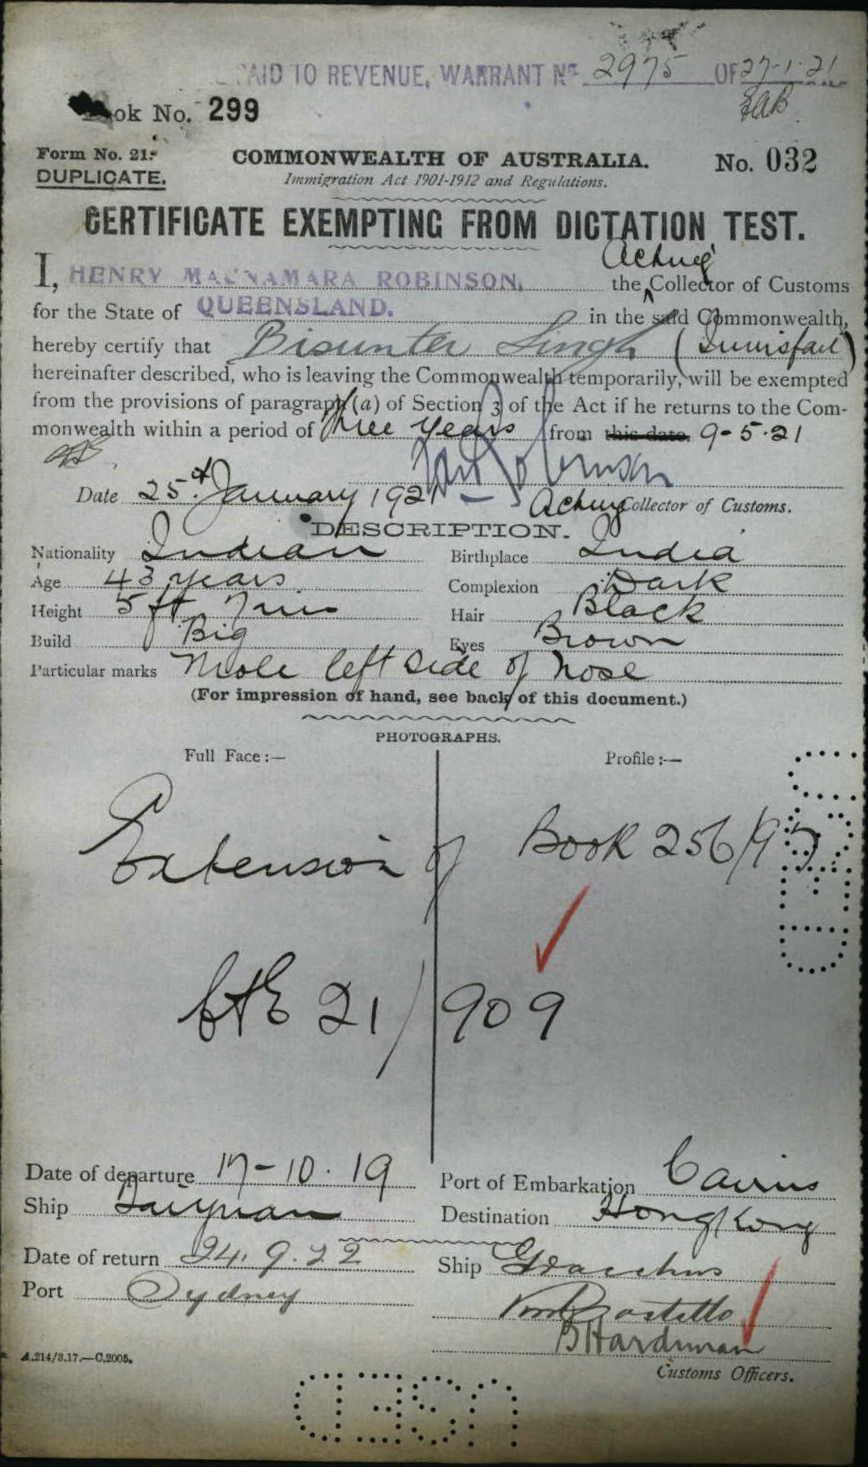 PAID TO REVENUE, WARRANT No. 2975 OF 27-1-21
Book No. 299
Form No. 21.
DUPLICATE.
COMMONWEALTH OF AUSTRALIA.
No. 032
Immigration Act 1901-1912 and Regulations.
CERTIFICATE EXEMPTING FROM DICTATION TEST.
Acting
I, HENRY MACNAMARA ROBINSON, the Collector of Customs
for the State of QUEENSLAND. in the said Commonwealth,
hereby certify that Bisunter Singh (Innisfail)
hereinafter described, who is leaving the Commonwealth temporarily, will be exempted
from the provisions of paragraph (a) of Section 3 of the Act if he returns to the Com-
monwealth within a period of three years from this date. 9-5-21
Date 25th January 1921 Acting Collector of Customs.
DESCRIPTION.
Nationality Indian Birthplace India
Age 43 years Complexion Dark
Height 5 ft 7 ins Hair Black
Build Big Eyes Brown
Particular marks Mole left side of nose
(For impression of hand, see back of this document.)
PHOTOGRAPHS.
Full Face:— Profile:—
Extension of Book 256/97
21/909
Date of departure 17-10-19 Port of Embarkation Cairns
Ship Taiyuan Destination Hong Kong
Date of return 24.9.22 Ship Gracchus
Port Sydney
B Hardiman
Customs Officers.
A.214/3.17.—C.2005.
USED